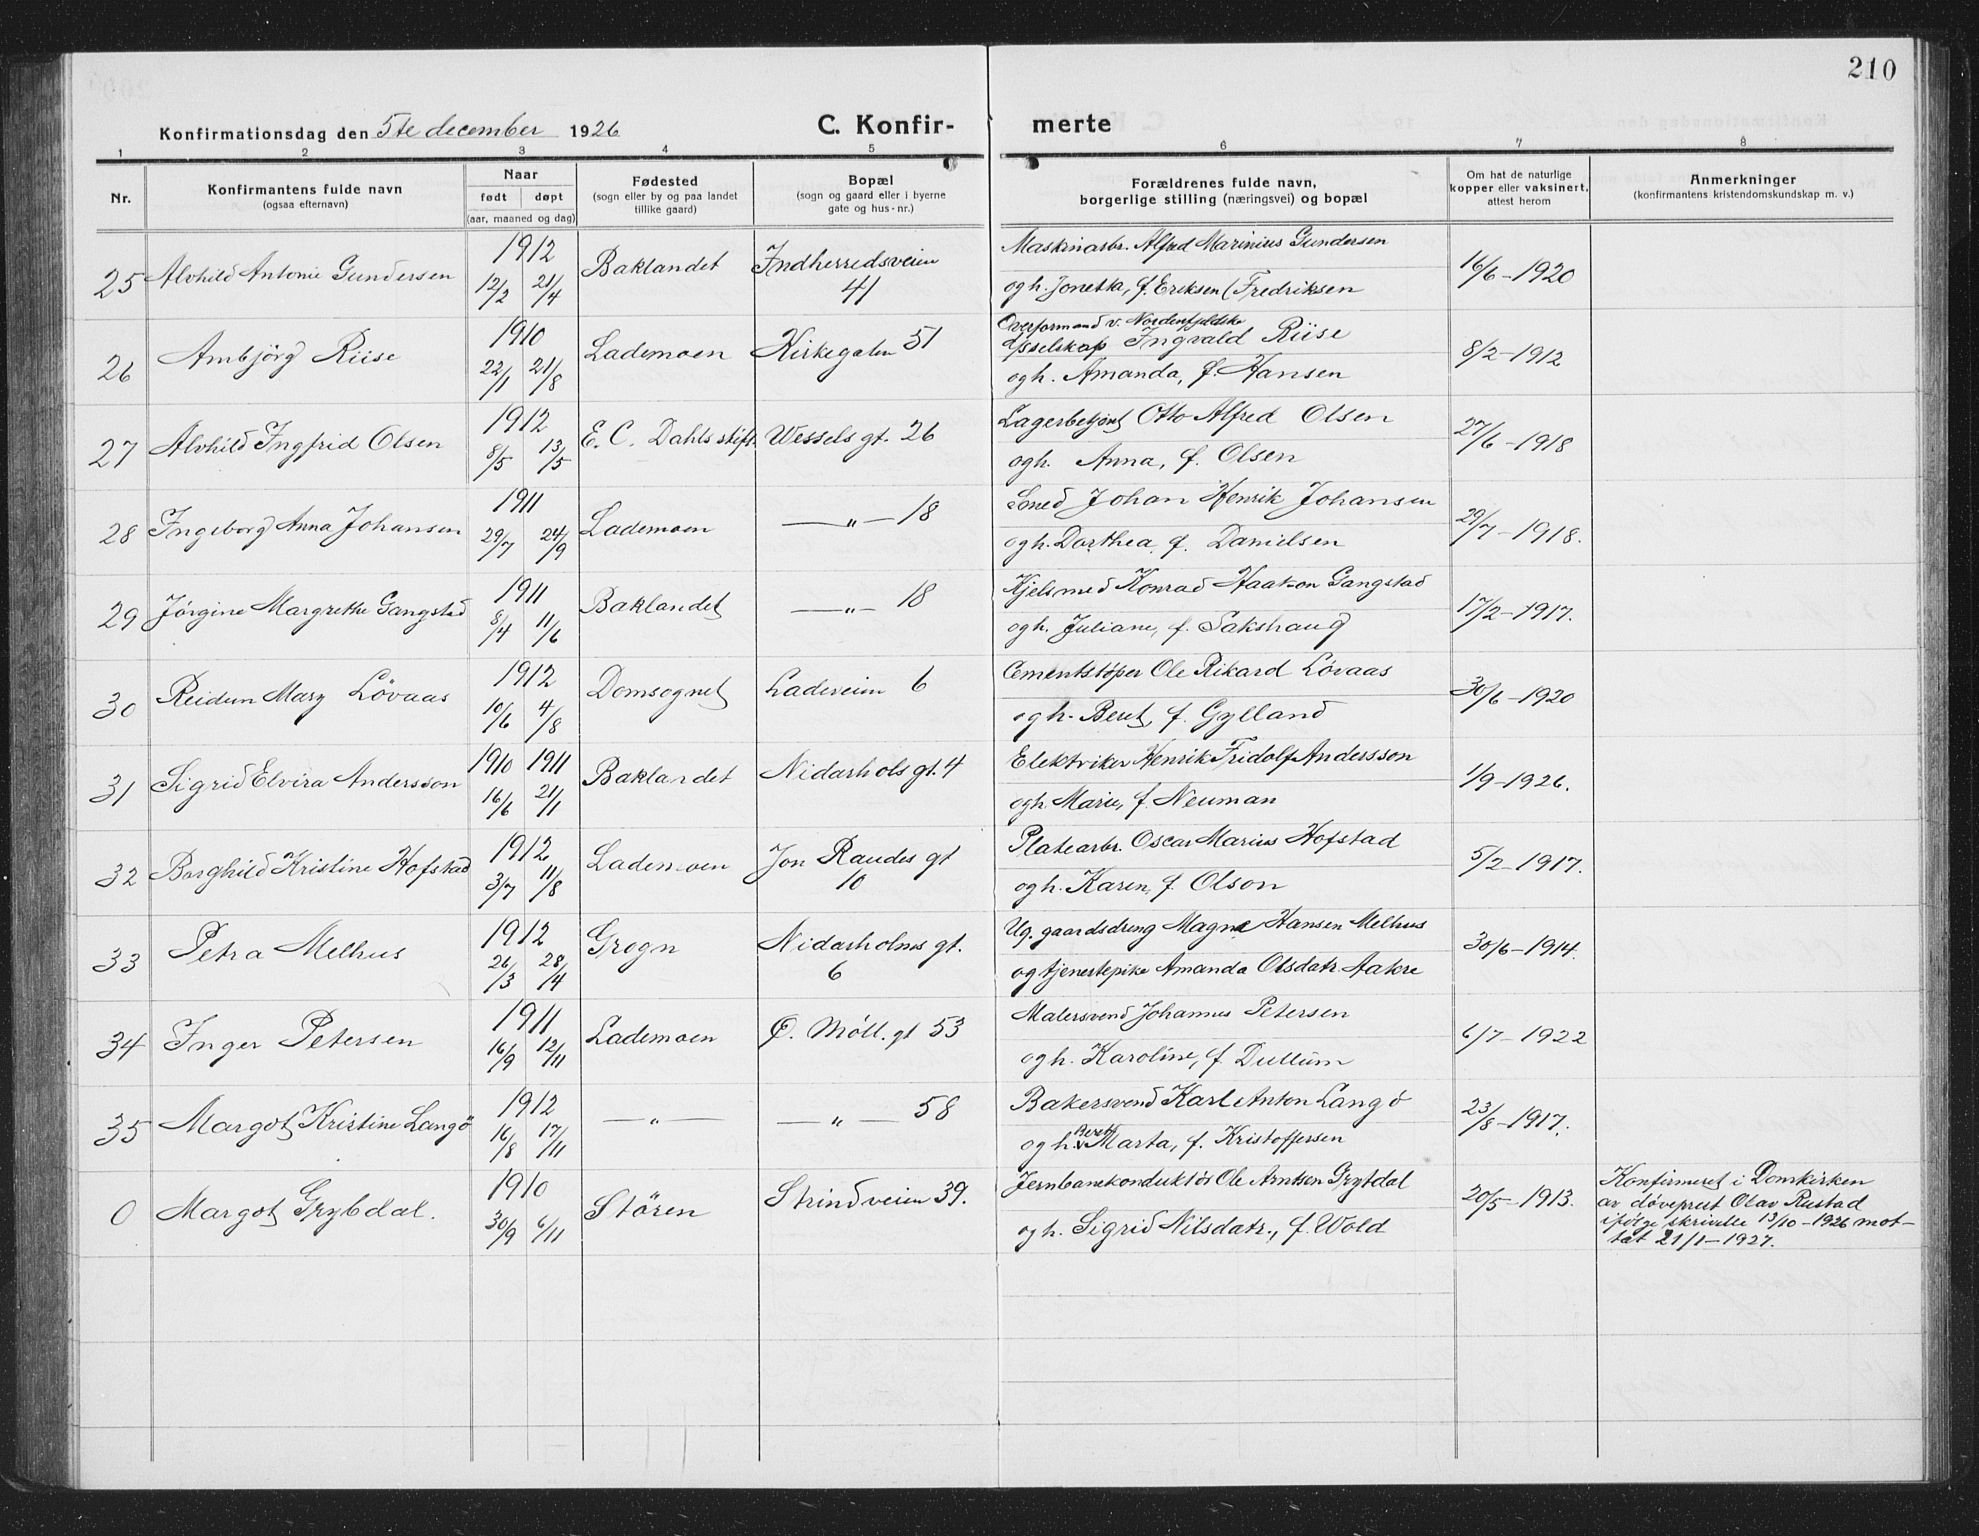 210
Konfirmationsdag den 5te december 1926 C. Konfir- merte
1 2 3 4 5 6 7 8
Nr. Konfirmantens fulde navn (ogsaa efternavn) Naar født døpt (aar, maaned og dag) Fødested (sogn eller by og paa landet tillike gaard) Bopæl (sogn og gaard eller i byerne gate og hus-nr.) Forældrenes fulde navn, borgerlige stilling (næringsvei) og bopæl Om hat de naturlige kopper eller vaksinert, attest herom Anmerkninger (konfirmantens kristendomskundskap m. v.)
25 Alvhild Antonie Gundersen 1912 12/2 21/4 Baklandet Indherredsveien 41 Maskinarbr. Alfred Marinius Gundersen
og h. Jonetta, f. Eriksen (Fredriksen 16/6-1920
26 Ambjörg Riise 1910 22/1 21/8 Lademoen Kirkegaten 51 Overformand v. Nordenfjeldske
D/sselskap Ingvald Riise
og h. Amanda, f. Hansen 8/2-1912
27 Alvhild Ingfrid Olsen 1912 8/5 13/5 E. C. Dahls stift. Wessels gt. 26 Lagerbetjent Otto Alfred Olsen
og h. Anna, f. Olsen 27/6-1918
28 Ingeborg Anna Johansen 1911 29/7 24/9 Lademoen —„— 18 Smed Johan Henrik Johansen
og h. Dorthea, f. Danielsen 29/7-1918.
29 Jørgine Margrethe Gangstad 1911 8/4 11/6 Baklandet —„— 18 Kjelsmed Konrad Gangstad
og h. Juliane, f. Sakshaug 17/2-1917.
30 Reidun Mary Lövaas 1912 10/6 4/8 Domsognet Ladeveien 6 Cementstøper Ole Rikard Løvaas
og h. Beret, f. Gylland 30/6-1920
31 Sigrid Elvira Andersson 1910 1911 16/6 21/1 Baklandet Nidarhols gt. 4 Elektriker Henrik Fridolf Andersson
og h. Marie, f. Neuman 1/9-1926.
32 Borghild Kristine Hofstad 1912 3/7 11/8 Lademoen Jon Raudes gt 10 Platearbr. Oscar Marius Hofstad
og h. Karen, f. Olson 5/2-1917.
33 Petra Melhus 1912 26/3 28/4 Grogn Nidarholms gt. 6 Ug. gaardsdreng Magne Hansen Melhus
og tjenestepike Amanda Olsdatr. Aakre 30/6-1914.
34 Inger Petersen 1911 16/9 12/11 Lademoen Ø. Möll. gt 53 Malersvend Johannes Petersen
og h. Karoline, f. Dullum 6/7-1922
35 Margot Kristine Langö 1912 16/8 17/11 —„— —„— 58 Bakersvend Karl Anton Langö
og h. Beret Marta, f. Kristoffersen 23/8-1917.
0 Margot Grytdal. 1910 30/9 6/11 Stören Strindveien 39. Jernbanekonduktör Ole Arntsen Grytdal
og h. Sigrid Nilsdatr., f. Wold 20/5-1913. Konfirmeret i Domkirken
av døveprest Olav Rustad
ifølge skrivelse 13/10-1926 mot-
tat 21/1-1927.